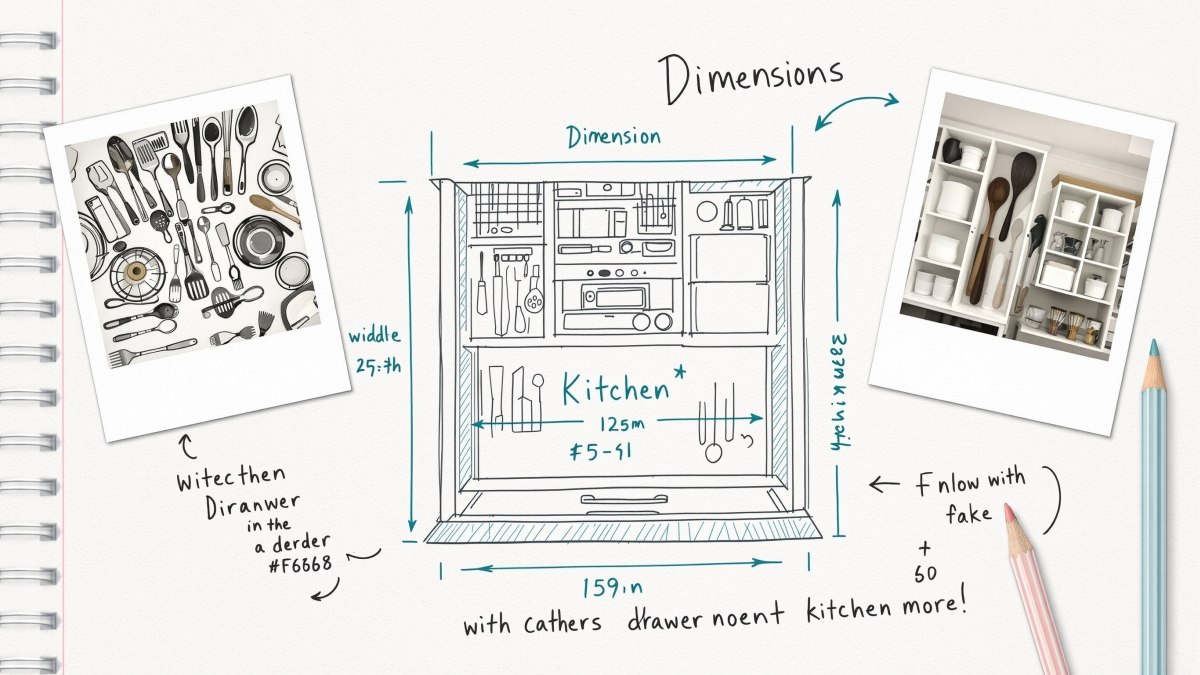 Dimensions
Dimension
widdle
25:th
Kitchen*
125m
#5-41
Witecthen
Diranwer
in the
a derder
#F6668
Fnlow with
fake
+
50
159in
with cathers drawer noent kitchen more!